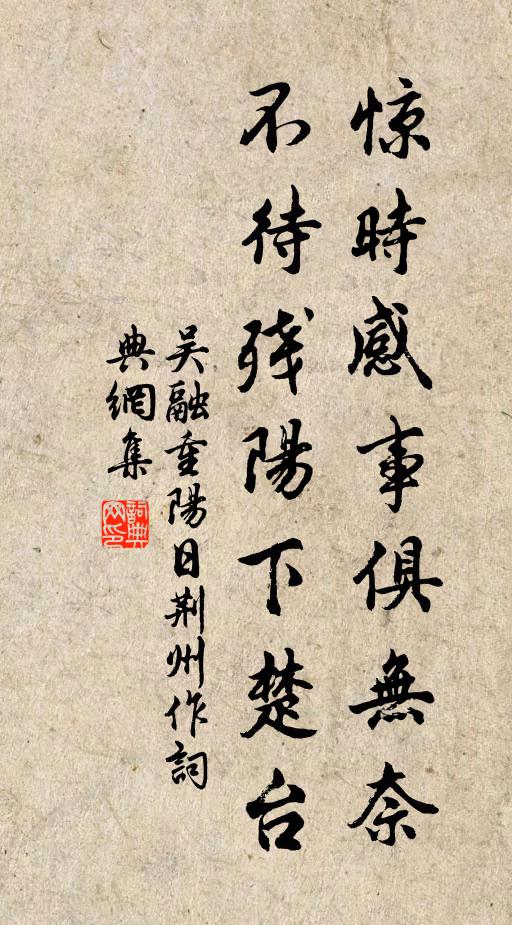 惊時感事俱無奈
不待残陽下楚台
吴融重陽日荆州作詞
典網集
詞典网印